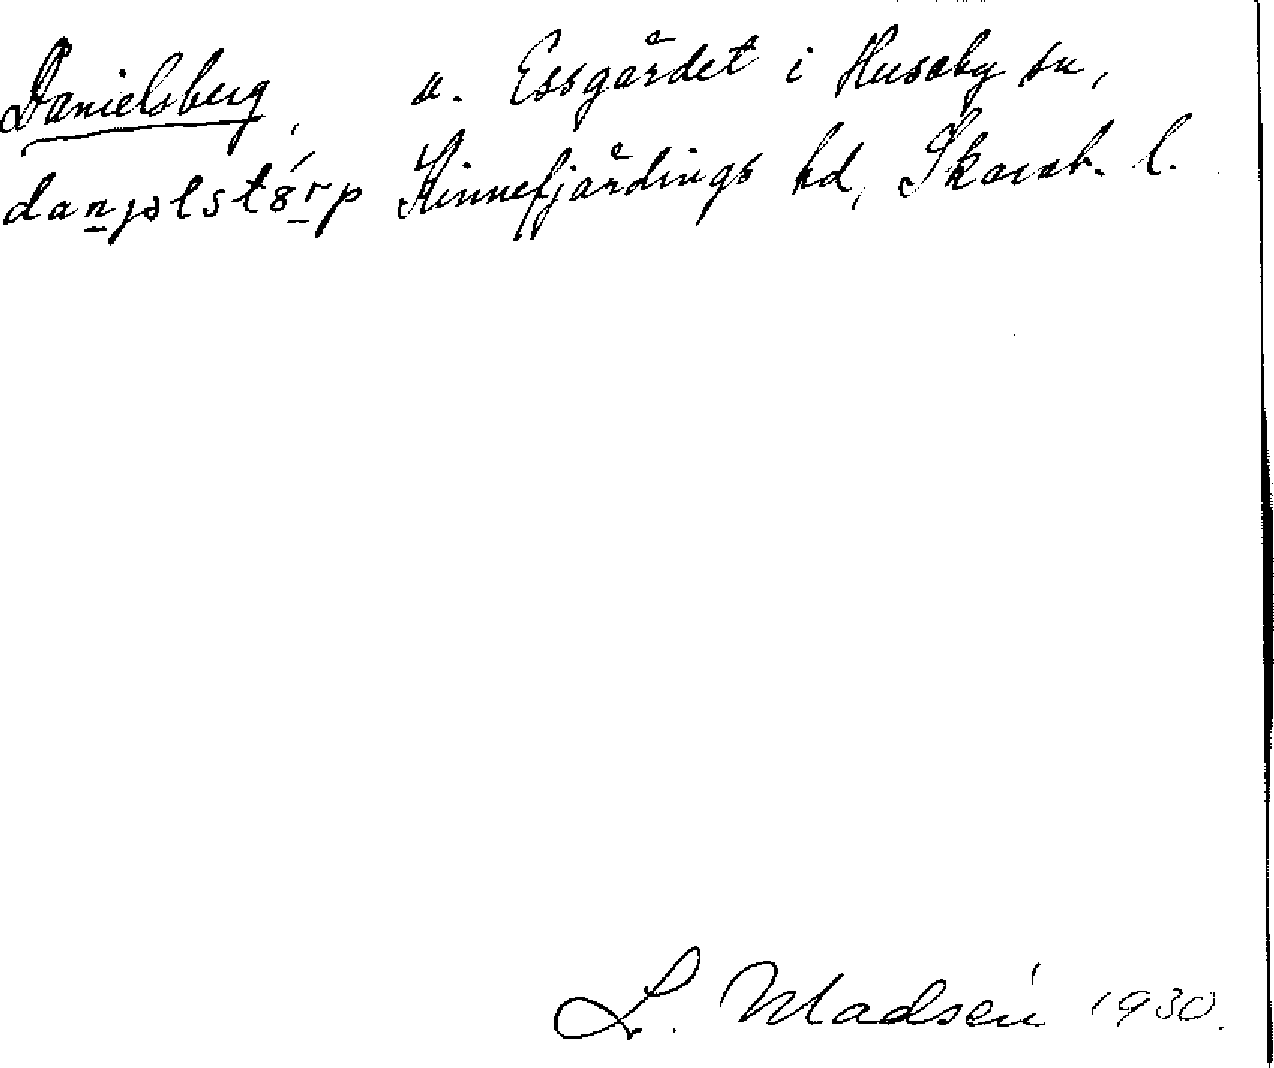 Danielsberg, u. Essgärdet i Husaby sn,
Kinnefjärdings hd, Skarab. l.
L. Madsén 1930.